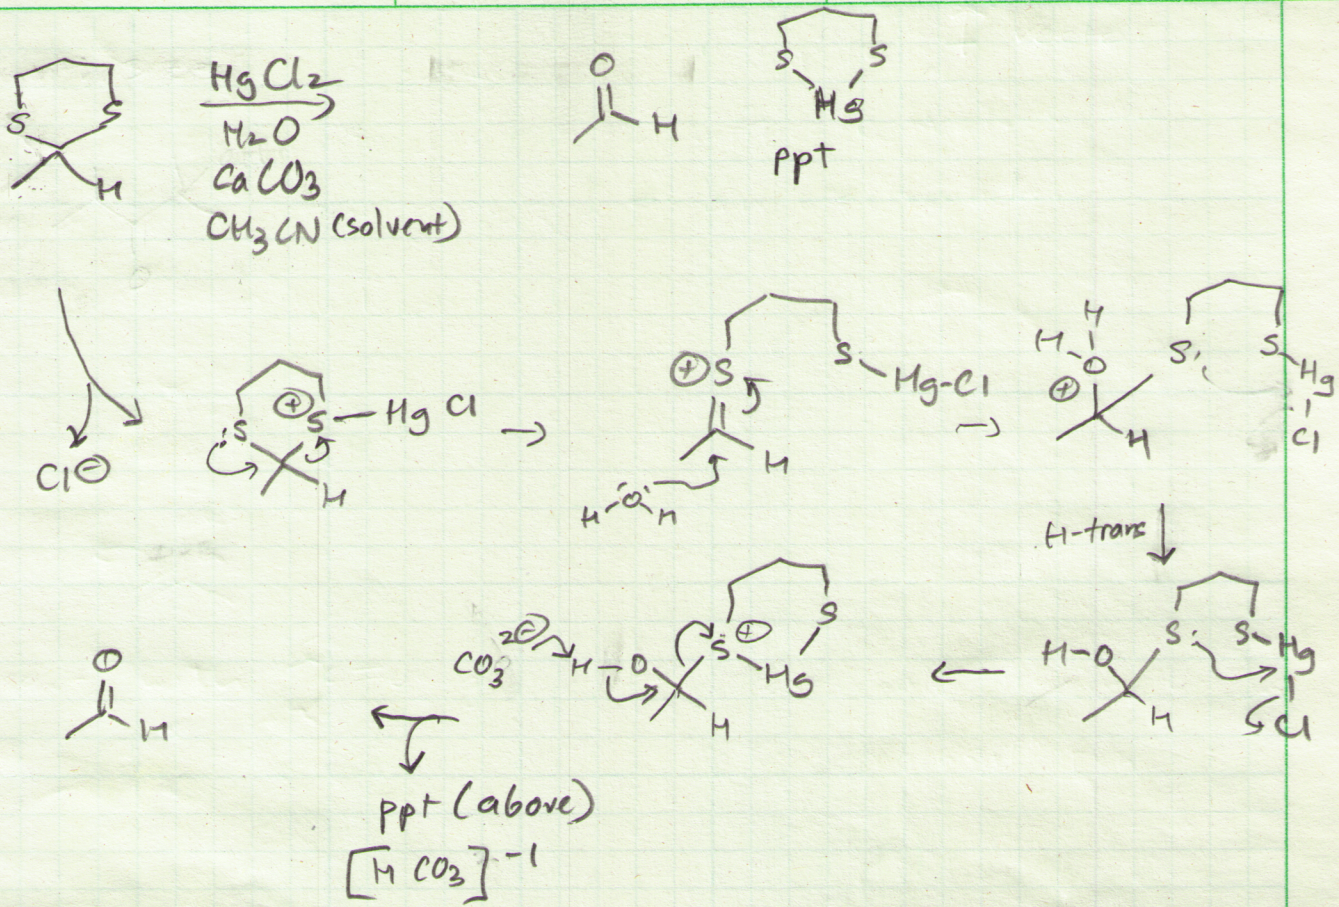 HgCl2
H2O
CaCO3
CH3CN (solvent)
S
S
H
O
H
S
S
Hg
ppt
Cl⊖
S
⊕
S
Hg Cl
H
⊕ S
S
Hg-Cl
H
H O H
H
H
O
⊕
H
S
S
Hg
Cl
H-trans
H-O
H
S
S
Hg
Cl
CO3 2⊖
H
O
H
S
⊕
Hg
S
O
H
ppt (above)
[H CO3]-1